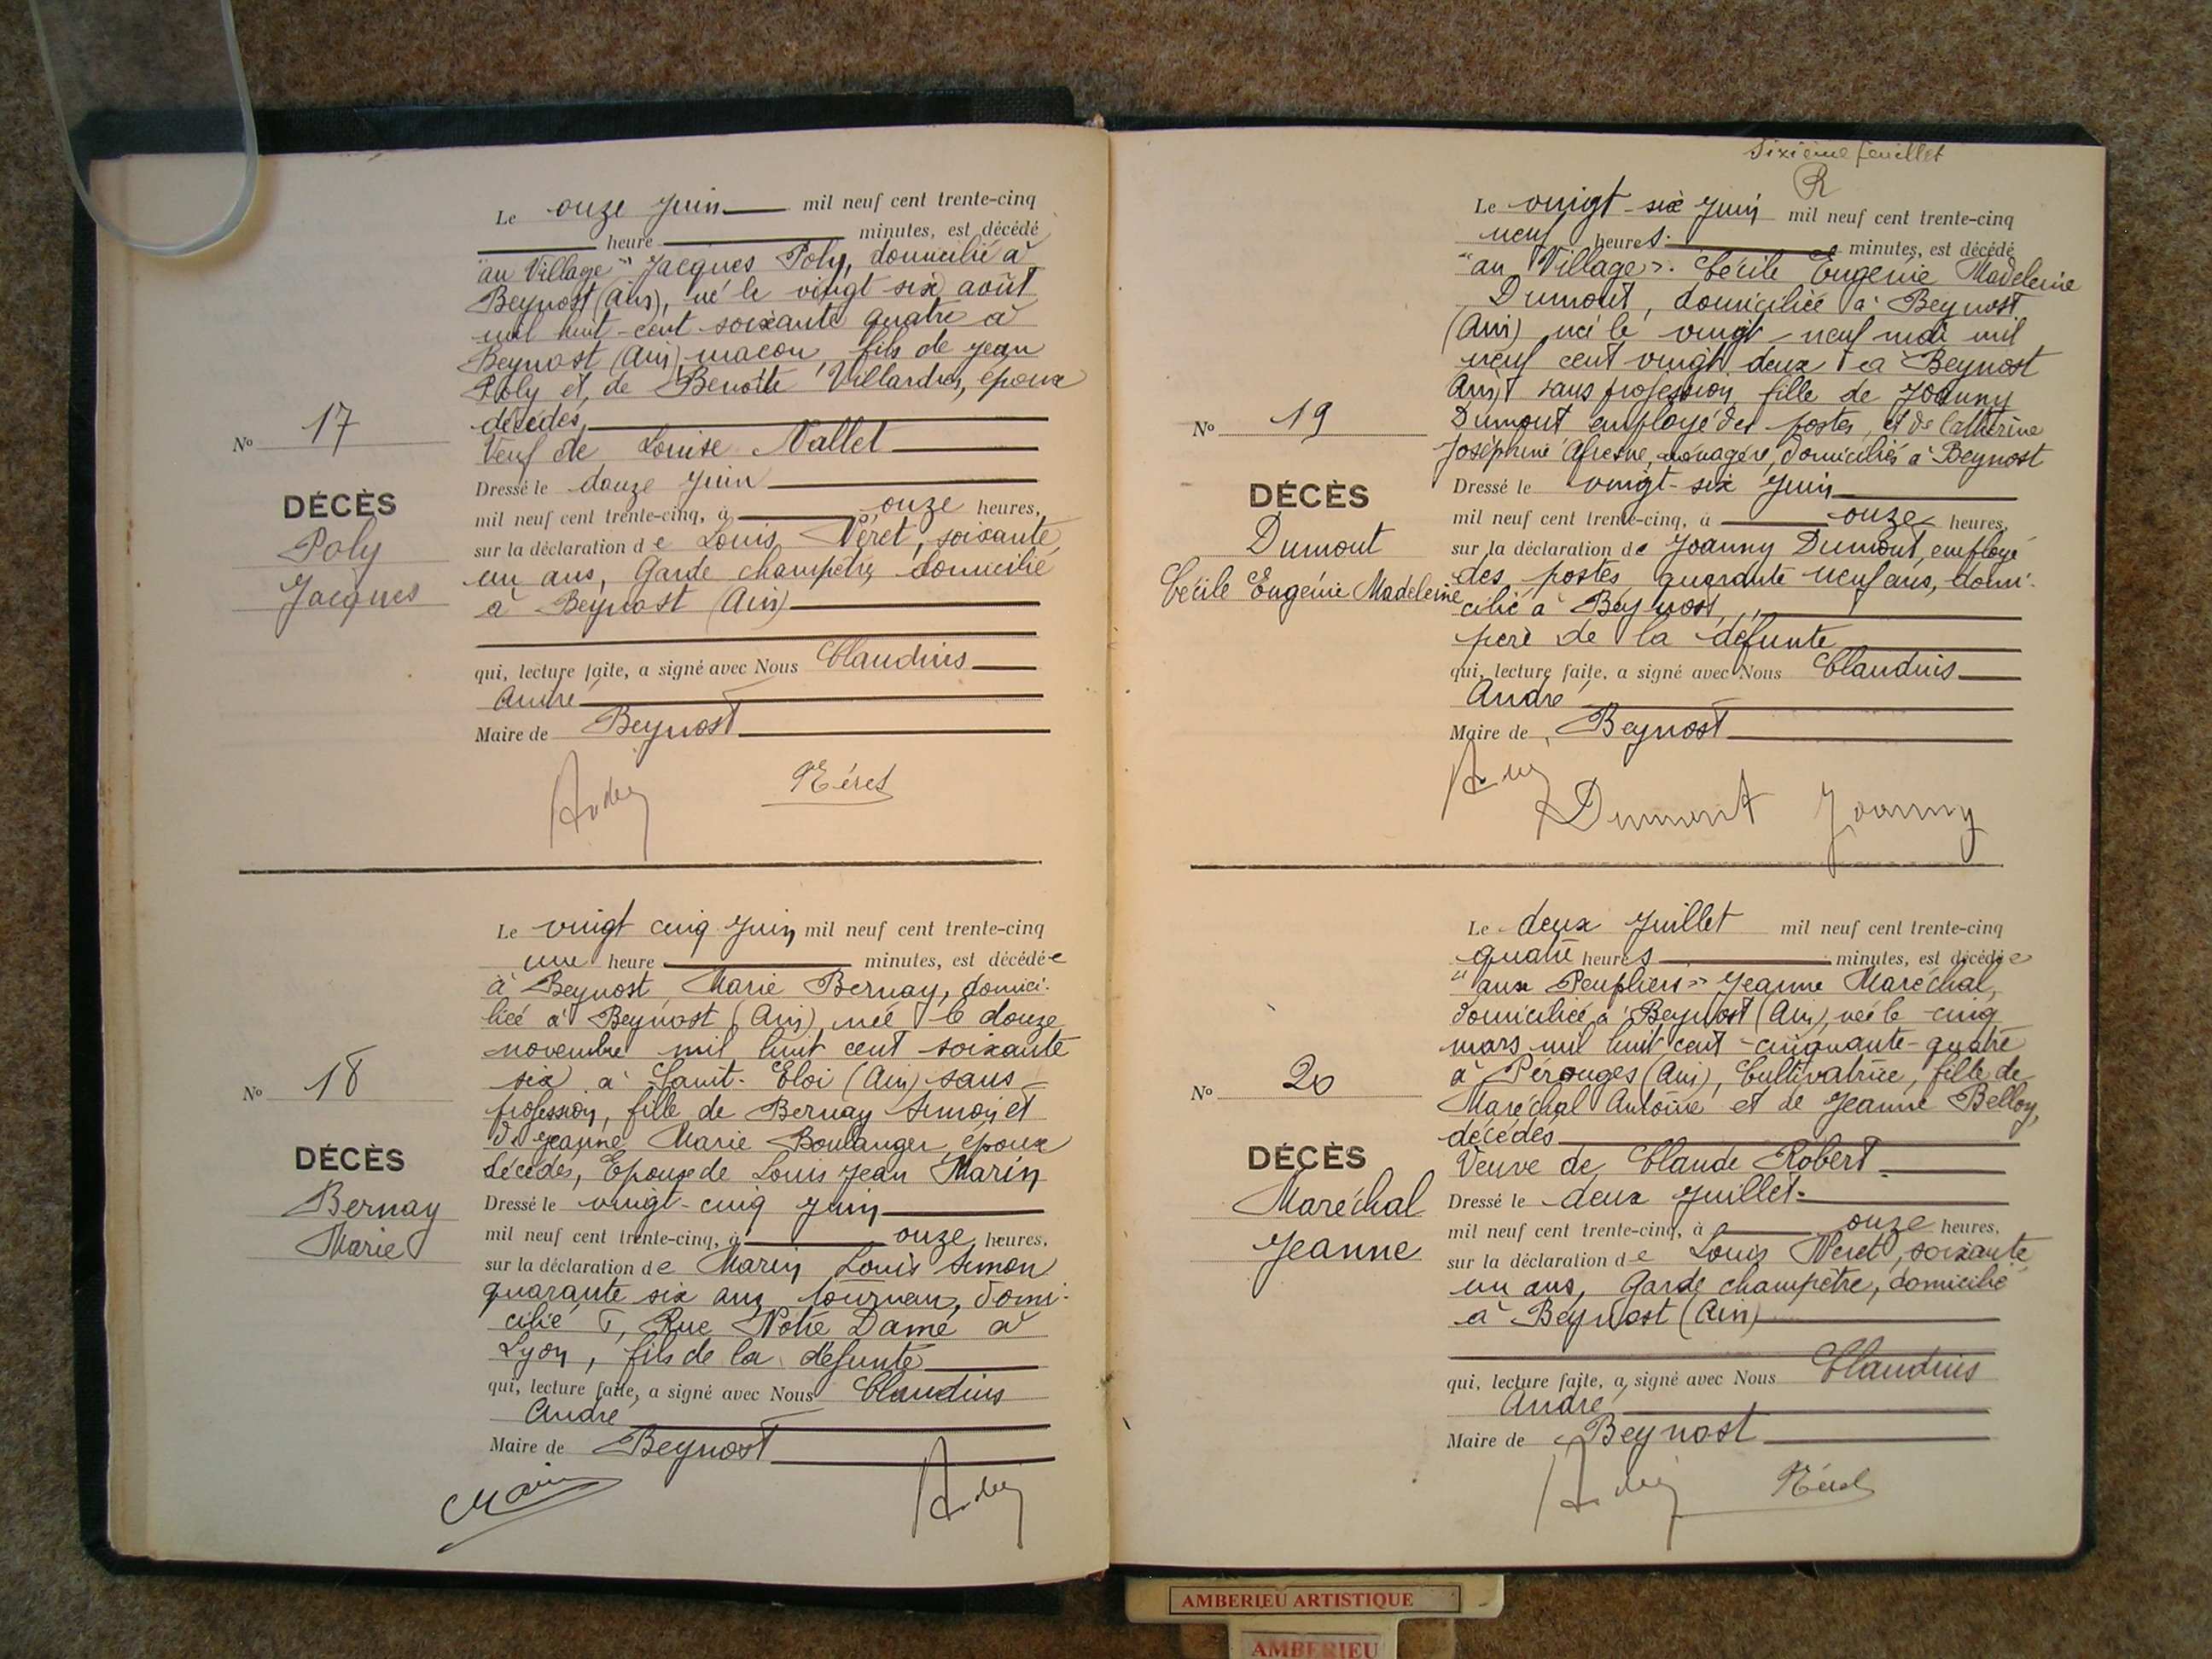 Le onze Juin mil neuf cent trente-cinq
heure minutes, est décédé
"au Village" Jacques Poly, domicilié à
Beynost (Ain), né le vingt six août
mil huit-cent soixante quatre à
Beynost (Ain) maçon, fils de Jean
Poly et de Benoîte Villardres, époux
décédés,
Veuf de Louise Nallet
Nº 17
DÉCÈS
Poly
Jacques
Dressé le douze Juin
mil neuf cent trente-cinq, à onze heures,
sur la déclaration de Louis Néret, soixante
un ans, Garde champêtre, domicilié
à Beynost (Ain)
qui, lecture faite, a signé avec Nous Claudius
André
Maire de Beynost
André Néret
Le vingt cinq Juin mil neuf cent trente-cinq
une heure minutes, est décédée
à Beynost Marie Bernay, domici-
liée à Beynost (Ain), née le douze
novembre mil huit cent soixante
six à Saint-Eloi (Ain) sans
profession, fille de Bernay Simon et
de Jeanne Marie Boulanger, époux
décédés, Epouse de Louis Jean Marin
Nº 18
DÉCÈS
Bernay
Marie
Dressé le vingt-cinq Juin
mil neuf cent trente-cinq, à onze heures,
sur la déclaration de Marin Louis Simon
quarante six ans, tourneur, domi-
cilié Rue Notre Dame à
Lyon, fils de la défunte
qui, lecture faite, a signé avec Nous Claudius
André
Maire de Beynost
Marin André
Sixième feuillet
R
Le vingt-six Juin mil neuf cent trente-cinq
neuf heures. minutes, est décédé
"au Village". Cécile Eugénie Madeleine
Dumont, domiciliée à Beynost
(Ain) née le vingt-neuf mai mil
neuf cent vingt deux à Beynost
Ain, sans profession, fille de Joanny
Dumont employé des postes, et de Catherine
Joséphine ménagère, domiciliés à Beynost
Nº 19
DÉCÈS
Dumont
Cécile Eugénie Madeleine
Dressé le vingt-six Juin
mil neuf cent trente-cinq, à onze heures,
sur la déclaration de Joanny Dumont, employé
des postes, quarante neuf ans, domi-
cilié à Beynost,
père de la défunte
qui, lecture faite, a signé avec Nous Claudius
André
Maire de Beynost
André
Dumont Joanny
Le deux Juillet mil neuf cent trente-cinq
quatre heures minutes, est décédée
"aux Peupliers" Jeanne Maréchal,
domiciliée à Beynost (Ain), née le cinq
mars mil huit cent-cinquante-quatre
à Pérouges (Ain), Cultivatrice, fille de
Maréchal Antoine et de Jeanne Belloy,
décédés
Veuve de Claude Robert
Nº 20
DÉCÈS
Maréchal
Jeanne
Dressé le deux Juillet
mil neuf cent trente-cinq, à onze heures,
sur la déclaration de Louis Néret, soixante
un ans, Garde champêtre, domicilié
à Beynost (Ain)
qui, lecture faite, a signé avec Nous Claudius
André
Maire de Beynost
André Néret
AMBERIEU ARTISTIQUE
AMBERIEU